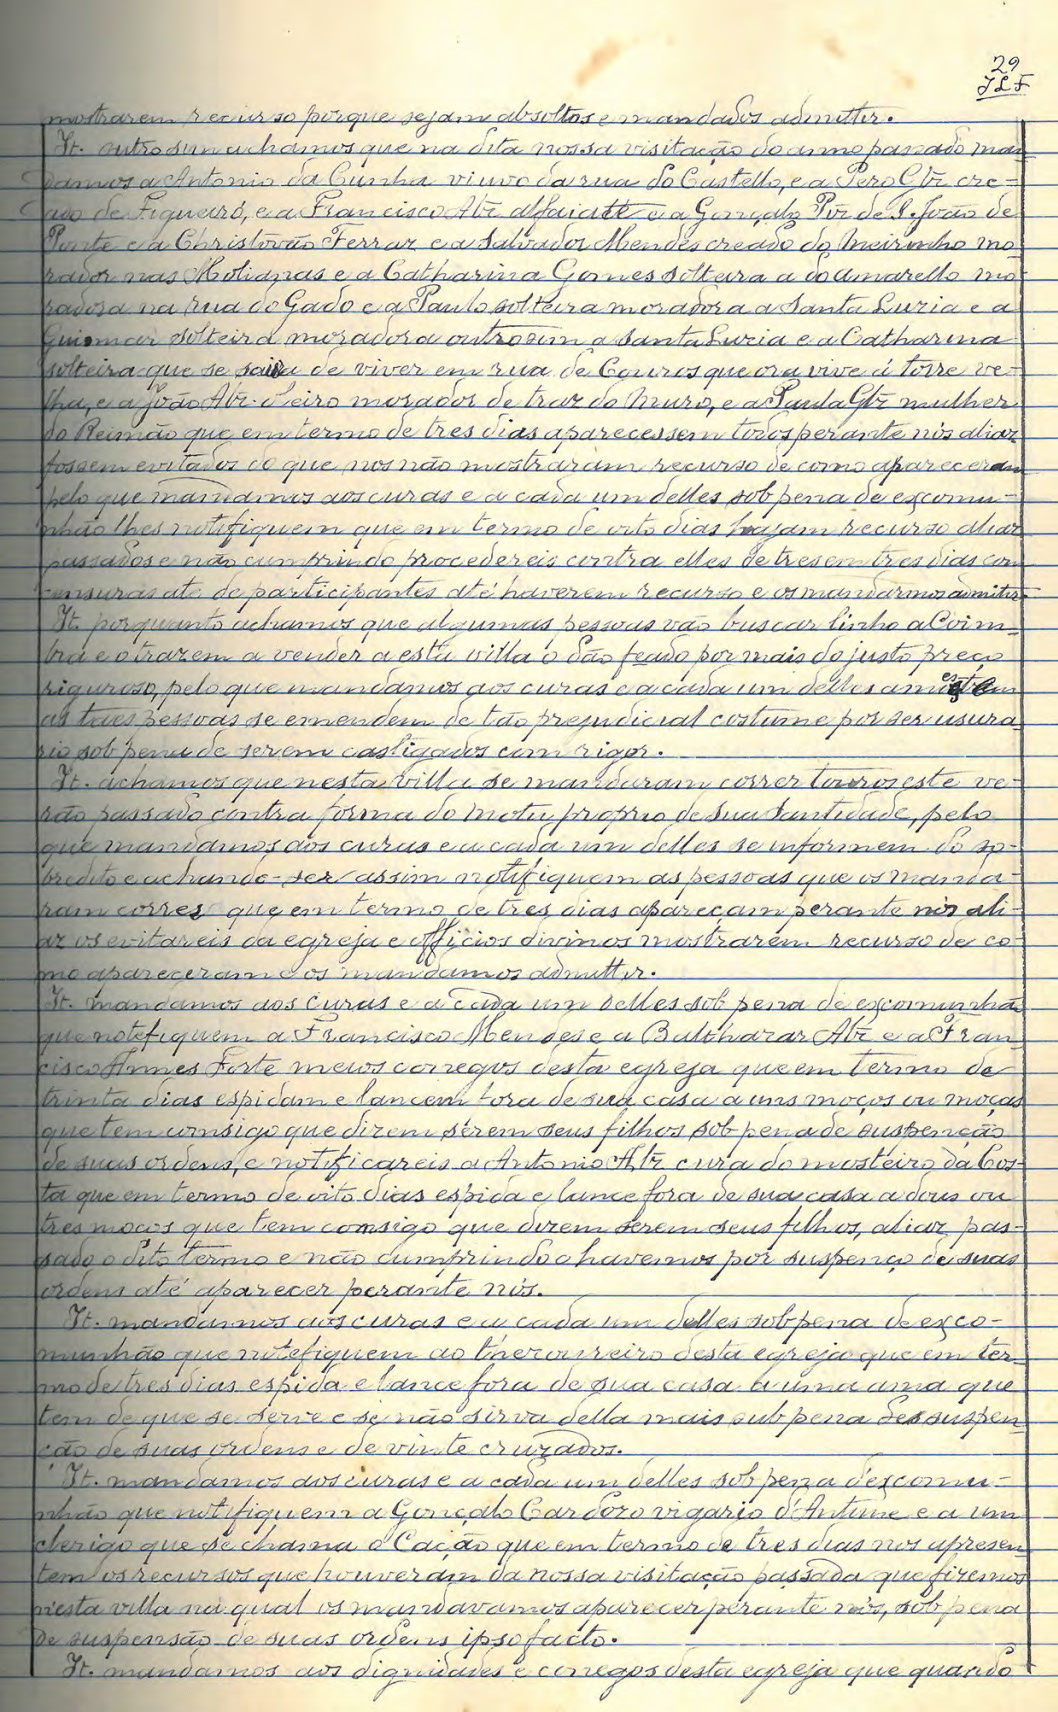 29
JLF
mostrarem recurso porque sejam absoltos e mandados admittir.
It. outro sim achamos que na dita nossa visitação do anno passado man-
damos a Antonio da Cunha viuvo da rua do Castello, e a Pero Glz cre-
ado de Figueiró, e a Francisco Abz alfaiate e a Gonçalo Piz de S. João de
Ponte e a Christovão Ferraz e a Salvador Mendes creado do Meirinho mo-
rador nas Molianas e a Catharina Gomes solteira a do amarello mo-
radora na rua do Gado e a Paulo solteira moradora a Santa Luzia e a
Guiomar solteira moradora outrosim a Santa Luzia e a Catharina
solteira que se saia de viver em rua de Couros que ora vive á torre ve-
lha, e a João Abz oleiro morador de traz do Muro, e a Paula Glz mulher
do Reimão que em termo de tres dias aparecessem todos perante nós aliaz
fossem evitados do que nos não mostraram recurso de como apareceram
pelo que mandamos aos curas e a cada um delles sob pena de excomu-
nhão lhes notifiquem que em termo de oito dias hajam recurso aliaz
passados e não cumprindo procedereis contra elles de tres em tres dias com
censuras ate de participantes até haverem recurso e os mandarmos admitir
It. porquanto achamos que algumas pessoas vão buscar linho a Coim-
bra e o trazem a vender a esta villa o dão feado por mais do justo preço
riguroso, pelo que mandamos aos curas e a cada um delles amoestem
as taes pessoas se emendem de tão prejudicial costume por ser usura-
rio sob pena de serem castigados com rigor.
It. achamos que nesta villa se mandaram correr touros este ve-
rão passado contra forma do motu proprio de Sua Santidade, pelo
que mandamos aos curas e a cada um delles se informem do so-
bredito e achando-ser assim notifiquem as pessoas que os manda-
ram correr que em termo de tres dias apareçam perante nós ali-
az os evitareis da egreja e officios divinos mostrarem recurso de co-
mo apareceram e os mandamos admittir.
It. mandamos aos curas e a cada um delles sob pena de excomunhão
que notefiquem a Francisco Mendes e a Balthazar Abz e a Fran-
cisco Annes Forte meios conegos desta egreja que em termo de
trinta dias espidam e lancem fora de sua casa a uns moços ou moças
que tem comsigo que dizem serem seus filhos sob pena de suspenção
de suas ordens, e notificareis a Antonio Abz cura do mosteiro da Cos-
ta que em termo de oito dias espida e lance fora de sua casa a dous ou
tres moços que tem comsigo que dizem serem seus filhos, aliaz pas-
sado o dito termo e não cumprindo o havemos por suspenço de suas
ordens até aparecer perante nós.
It. mandamos aos curas e a cada um delles sob pena de exco-
munhão que notefiquem ao thezoureiro desta egreja que em ter-
mo de tres dias espida e lance fora de sua casa a uma ama que
tem de que se serve e se não sirva della mais sub pena de suspen-
ção de suas ordens e de vinte cruzados.
It. mandamos aos curas e a cada um delles sob pena d'excomu-
nhão que notifiquem a Gonçalo Cardozo vigario d'Antime e a um
clerigo que se chama o Cação que em termo de tres dias nos apresen-
tem os recursos que houveram da nossa visitação passada que fizemos
n'esta villa na qual os mandavamos aparecer perante nós, sob pena
de suspensão de suas ordens ipso facto.
It. mandamos aos dignidades e conegos desta egreja que quando